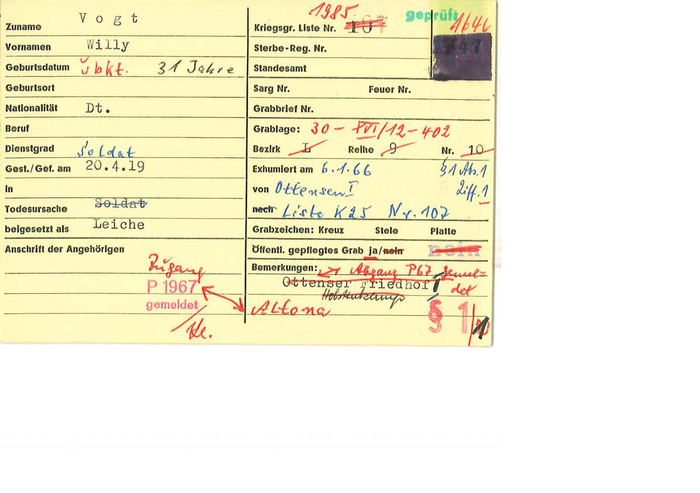 Zuname Vogt
Vornamen Willy
Geburtsdatum übkt. 31 Jahre
Geburtsort
Nationalität Dt.
Beruf
Dienstgrad Soldat
Gest./Gef. am 20.4.19
in
Todesursache Soldat
beigesetzt als Leiche
Anschrift der Angehörigen
Zugang
P 1967
gemeldet
1985 geprüft
Kriegsgr. Liste Nr. 107
Sterbe-Reg. Nr.
Standesamt
Sarg Nr. Feuer Nr.
Grabbrief Nr.
Grablage: 30 - XVI/12-402
Bezirk L Reihe 9 Nr. 10
Exhumiert am 6.1.66 §1 Ab.1
von Ottensen I Ziff. 1
nach Liste K25 Nr. 107
Grabzeichen: Kreuz Stele Platte
Öffentl. gepflegtes Grab ja/nein nein
Bemerkungen: Abgang P67 gemeldet
Ottenser Friedhof
Altona
§ 1/